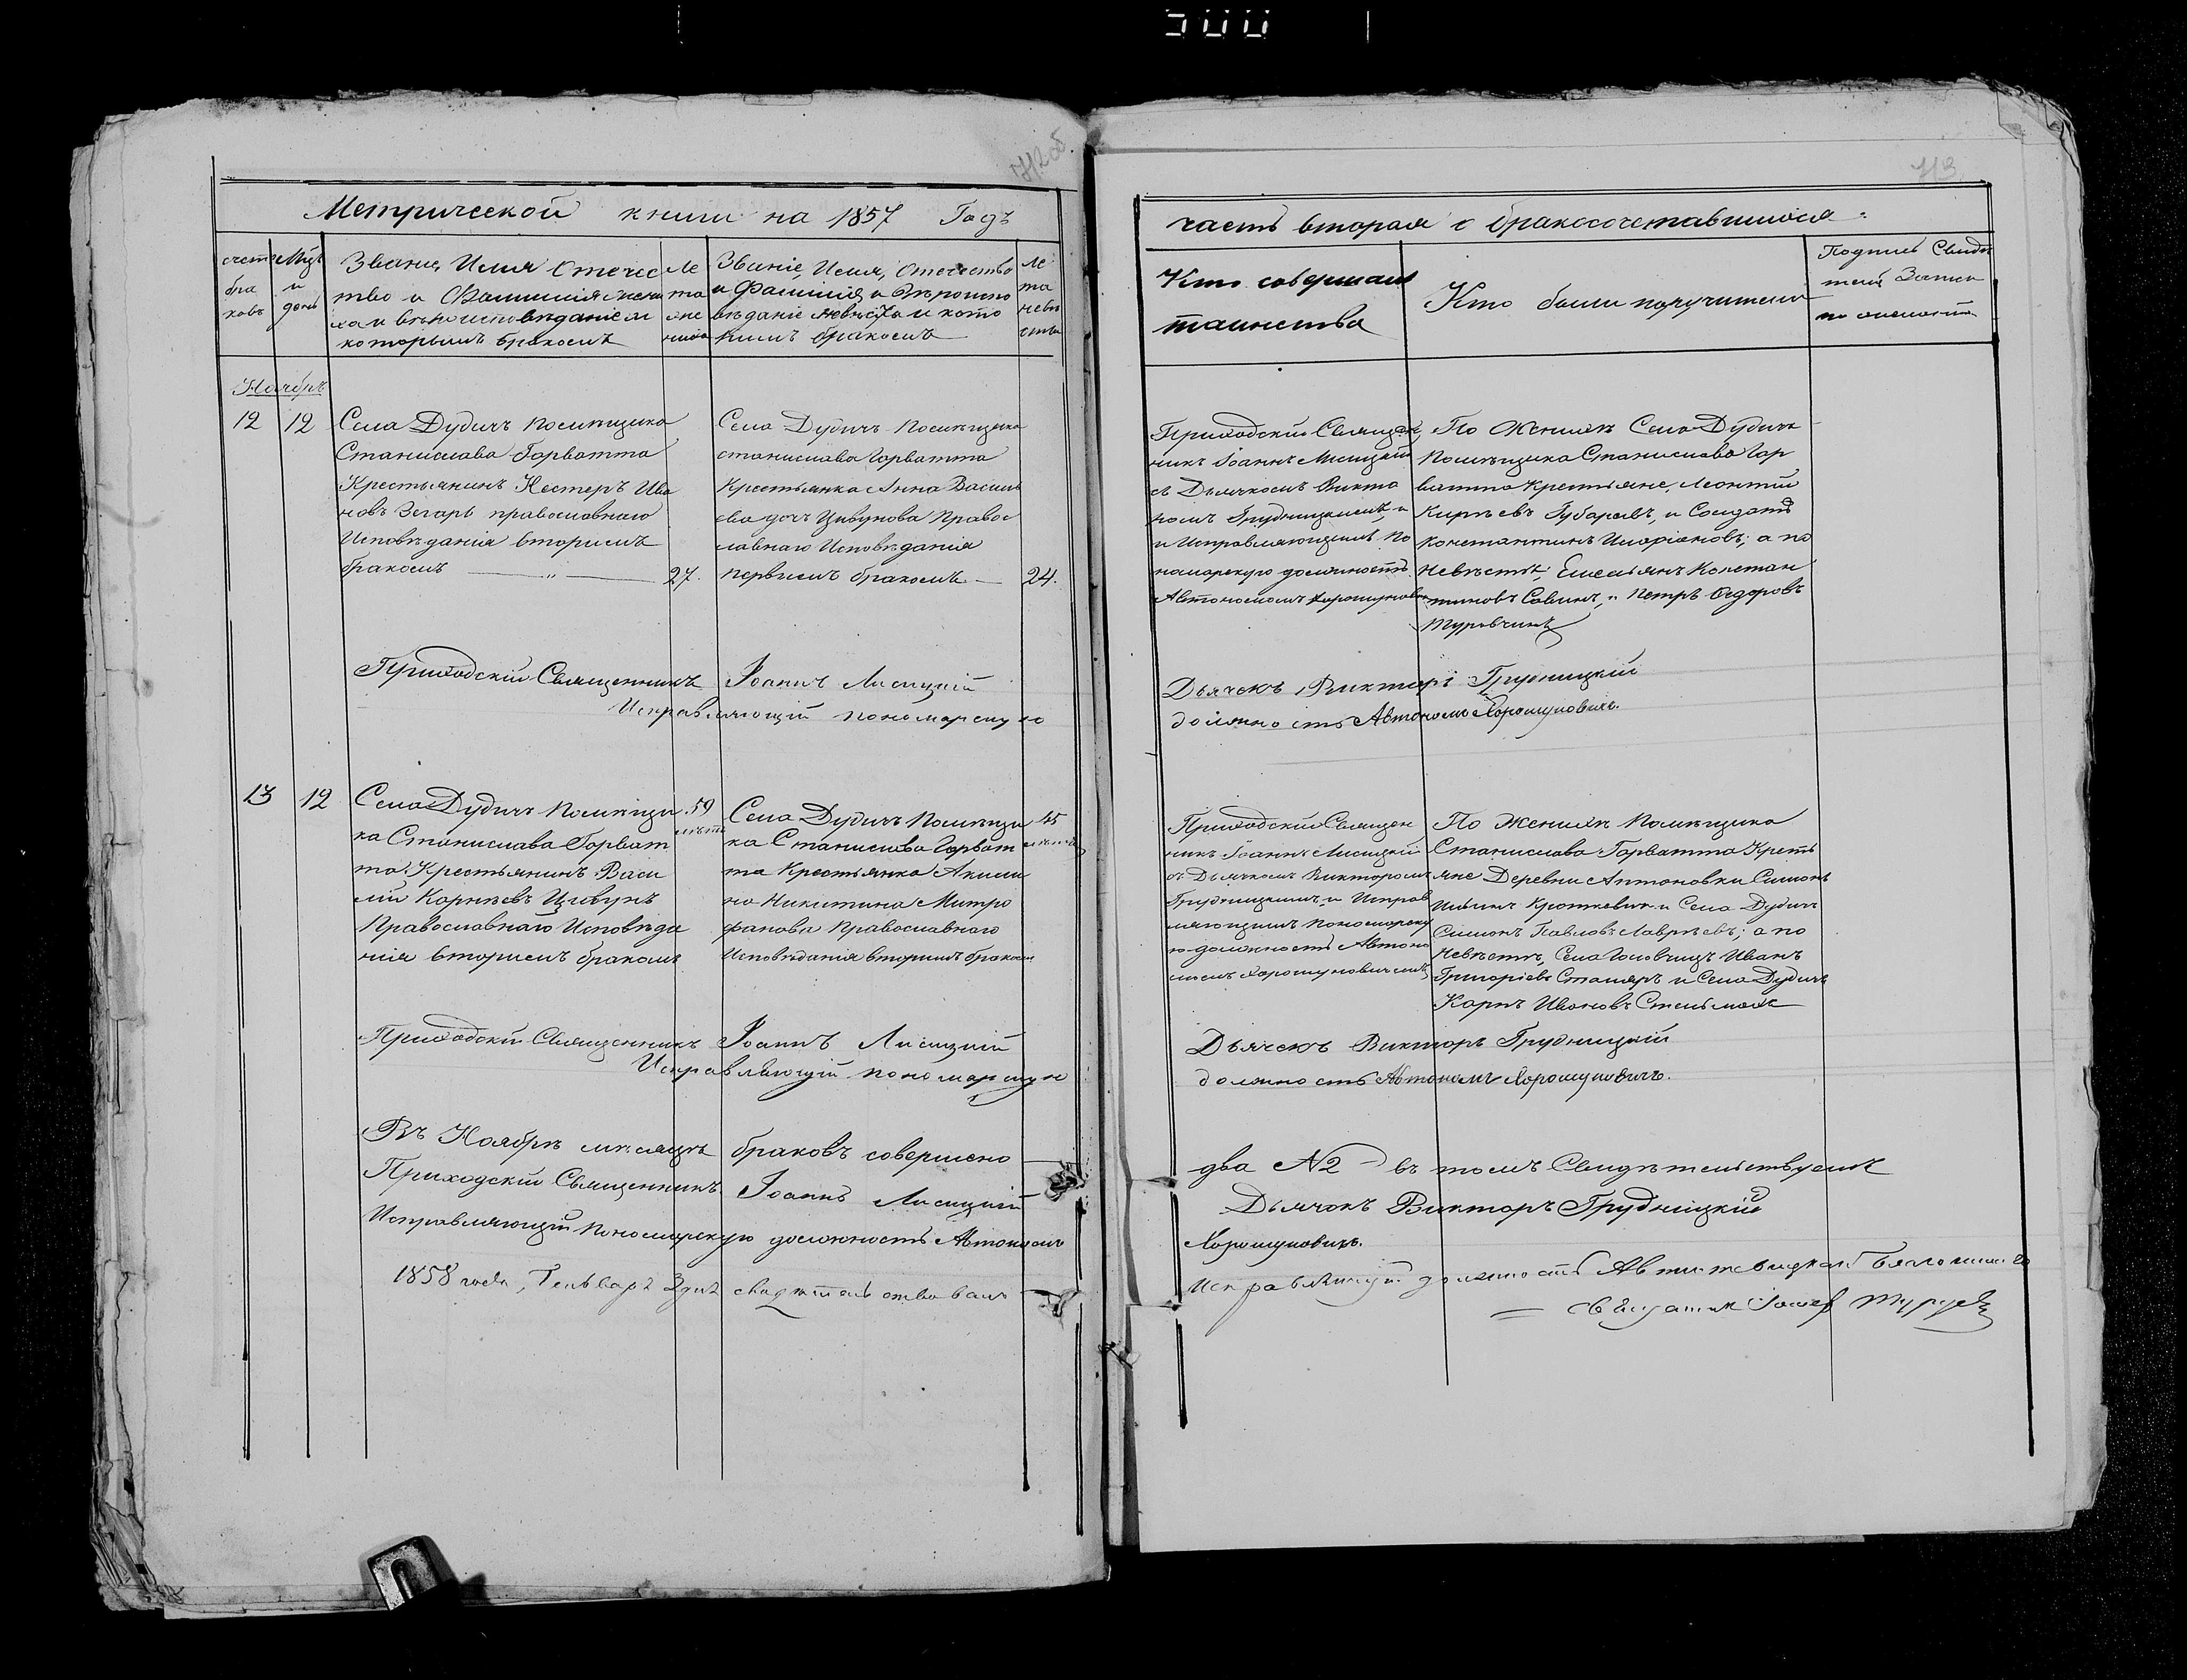 500
712 об.
Метрической книги на 1857 Годъ
счетъ
бра
ковъ
Мцъ
и
день
Званіе, Имя Отечес
тво и Фамилія жени
ха и вѣроисповѣданіе и
которымъ бракомъ
Ле
та
же
ниха
Званіе, Имя, Отечество
и Фамилія и Вѣроиспо
вѣданіе невѣсты и кото
рымъ бракомъ
Ле
та
невѣ
сты
Ноябрь
12 12
Села Дудичъ помѣщика
Станислава Горватта
Крестьянинъ Нестеръ Ива
новъ Зегарь православнаго
Исповѣданія вторымъ
бракомъ — „ — 27.
Села Дудичъ Помѣщика
станислава Горватта
Крестьянка Анна Василь
ева дочъ Цивунова Правос
лавнаго Исповѣданія
первымъ бракомъ — 24.
Приходскій Священникъ Іоаннъ Лисицкій
Исправляющій пономарскую
13 12
Села Дудичъ Помѣщи
ка Станислава Горват
та Крестьянинъ Васи
лій Корнѣевъ Цивунъ
Православнаго Исповѣда
нія вторымъ бракомъ
59
лѣтъ
Села Дудичъ Помѣщи
ка Станислава Горват
та Крестьянка Акили
на Никитина Митро
фанова Православнаго
Исповѣданія вторымъ бракомъ
45
лѣтъ
Приходскій Священникъ Іоаннъ Лисицкій
Исправляющій пономарскую
Въ Ноябрѣ мѣсяцѣ браковъ совершено
Приходскій Священникъ Іоаннъ Лисицкій
Исправляющій Пономарскую должность Автономъ
1858 года, Генваря 2 дня свидѣтельствовалъ
713
часть вторая о бракосочетавшихся
Кто совершалъ
таинства
Кто были поручители
Подпись Свидѣ
телей Записи
по
Приходскій Священ
никъ Іоаннъ Лисицкій
съ Дьячкомъ Викто
ромъ Грудницкимъ, и
и Исправляющимъ По
номарскую должность
Автономомъ Хорошуновичемъ
По Женихѣ Села Дудичъ
Помѣщика Станислава Гор
ватта Крестьяне, Леонтій
Кирѣевъ Губаревъ, и Солдатъ
Константинъ Иларіоновъ; а по
Невѣстѣ; Емельянъ Констан
тиновъ Савинъ, и Петръ Ѳедоровъ
Туровчикъ
Дьячокъ Викторъ Грудницкій
должность Автономъ Хорошуновичъ.
Приходскій Священ
никъ Іоаннъ Лисицкій
съ Дьячкомъ Викторомъ
Грудницкимъ, и Исправ
ляющимъ Пономарску
ю должность Автоно
момъ Хорошуновичемъ
По Женихѣ Помѣщика
Станислава Горватта Кресть
яне Деревни Антоновки Симонъ
Ильинъ Кроткевичъ и Села Дудичъ
Симонъ Павловъ Лаврѣевъ; а по
Невѣстѣ, Села Головчицъ Иванъ
Григоріевъ Столяръ и Села Дудичъ
Карпъ Ивановъ Стельмахъ
Дьячекъ Викторъ Грудницкій
должность Автономъ Хорошуновичъ.
два № 2 въ томъ Свидѣтельствуемъ
Дьячокъ Викторъ Грудницкій
Хорошуновичъ.
Исправляющій должность